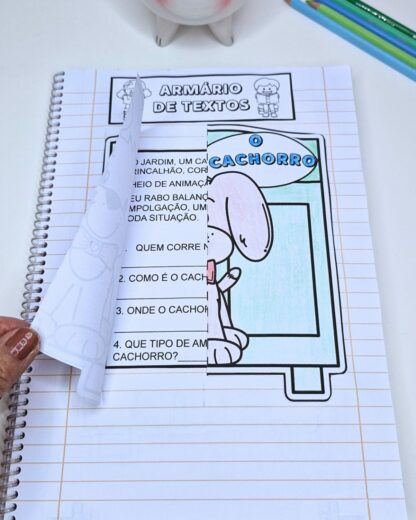 ARMÁRIO
DE TEXTOS
O
CACHORRO
O JARDIM, UM CA
RINCALHÃO, COR
HEIO DE ANIMAÇÃ
EU RABO BALANÇ
MPOLGAÇÃO, UM
ODA SITUAÇÃO.
QUEM CORRE N
2. COMO É O CACH
3. ONDE O CACHOR
4. QUE TIPO DE AM
CACHORRO?